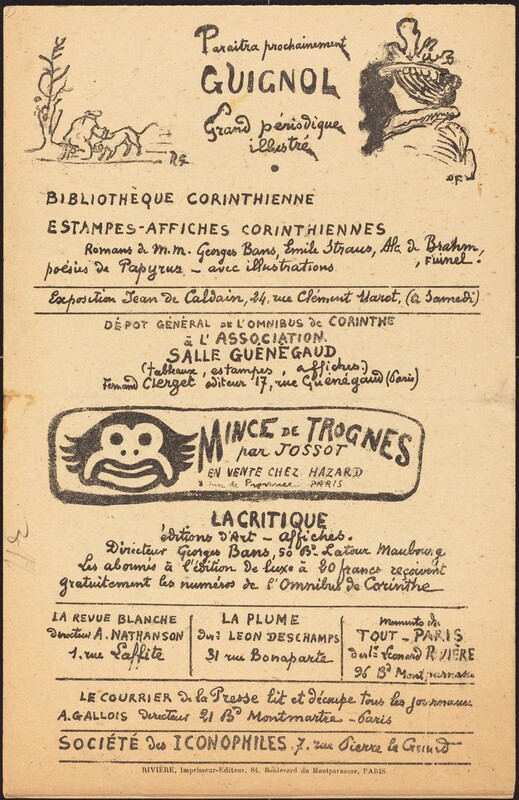 Paraîtra prochainement
GUIGNOL
Grand périodique
illustré
BIBLIOTHÈQUE CORINTHIENNE
ESTAMPES-AFFICHES CORINTHIENNES
Romans de M.M. Georges Bans, Emile Straus, Alc de Brahm,
poésies de Papyrus _ avec illustrations , Fuinel.
Exposition Jean de Caldain, 24, rue Clément Marot. (Le Samedi)
DÉPOT GÉNÉRAL DE L'OMNIBUS de CORINTHE
à L'ASSOCIATION.
SALLE GUÉNÉGAUD
(tableaux, estampes, affiches.)
Fernand Clerget éditeur 17, rue Guénégaud (Paris)
MINCE DE TROGNES
par JOSSOT
EN VENTE CHEZ HAZARD
8 rue de Provence PARIS
LA CRITIQUE
éditions d'Art _ Affiches.
Directeur Georges Bans, 50 Bd. Latour Maubourg
Les abonnés à l'édition de luxe à 20 francs reçoivent
gratuitement les numéros de l'Omnibus de Corinthe
LA REVUE BLANCHE
directeur A. NATHANSON
1. rue Laffite
LA PLUME
Dirr: LEON DESCHAMPS
31 rue Bonaparte
Memento du
TOUT-PARIS
Léonard RIVIÈRE
96 Bd Montparnasse
LE COURRIER de la Presse lit et découpe tous les journaux
A. GALLOIS directeur 21 Bd Montmartre - Paris
SOCIÉTÉ des ICONOPHILES. 7. rue Pierre le Grand
RIVIÈRE, Imprimeur-Editeur, 84, Boulevard du Montparnasse, PARIS.